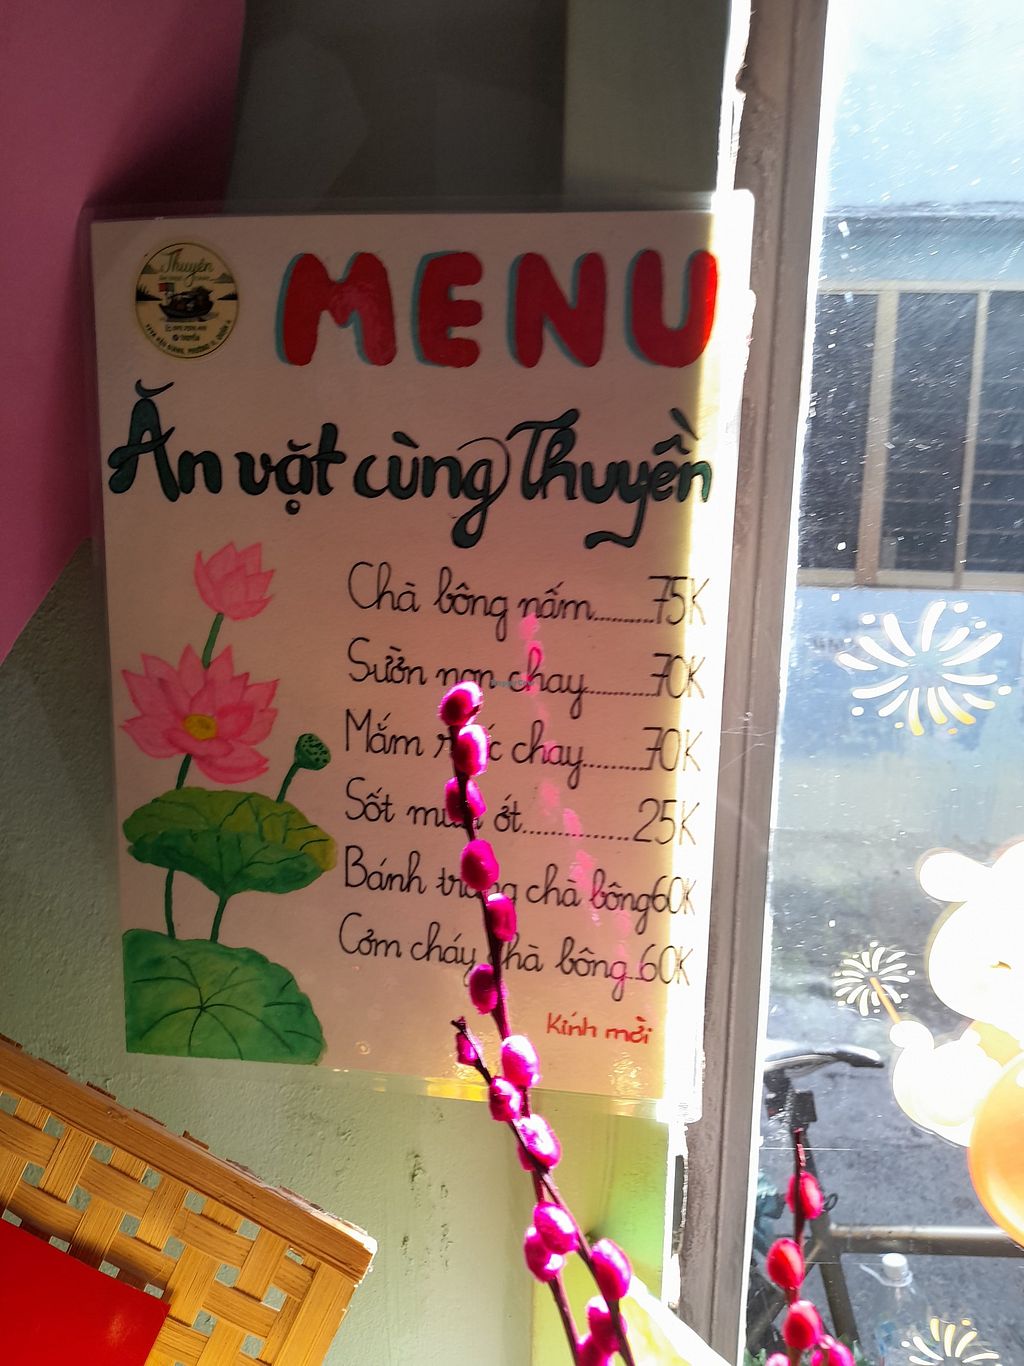 Thuyền
MENU
Ăn vặt cùng Thuyền
Chà bông nấm..........75K
Sườn non chay..........70K
Mắm chay.........70K
Sốt ớt...............25K
Bánh tráng chà bông60K
Cơm cháy chà bông..60K
Kính mời